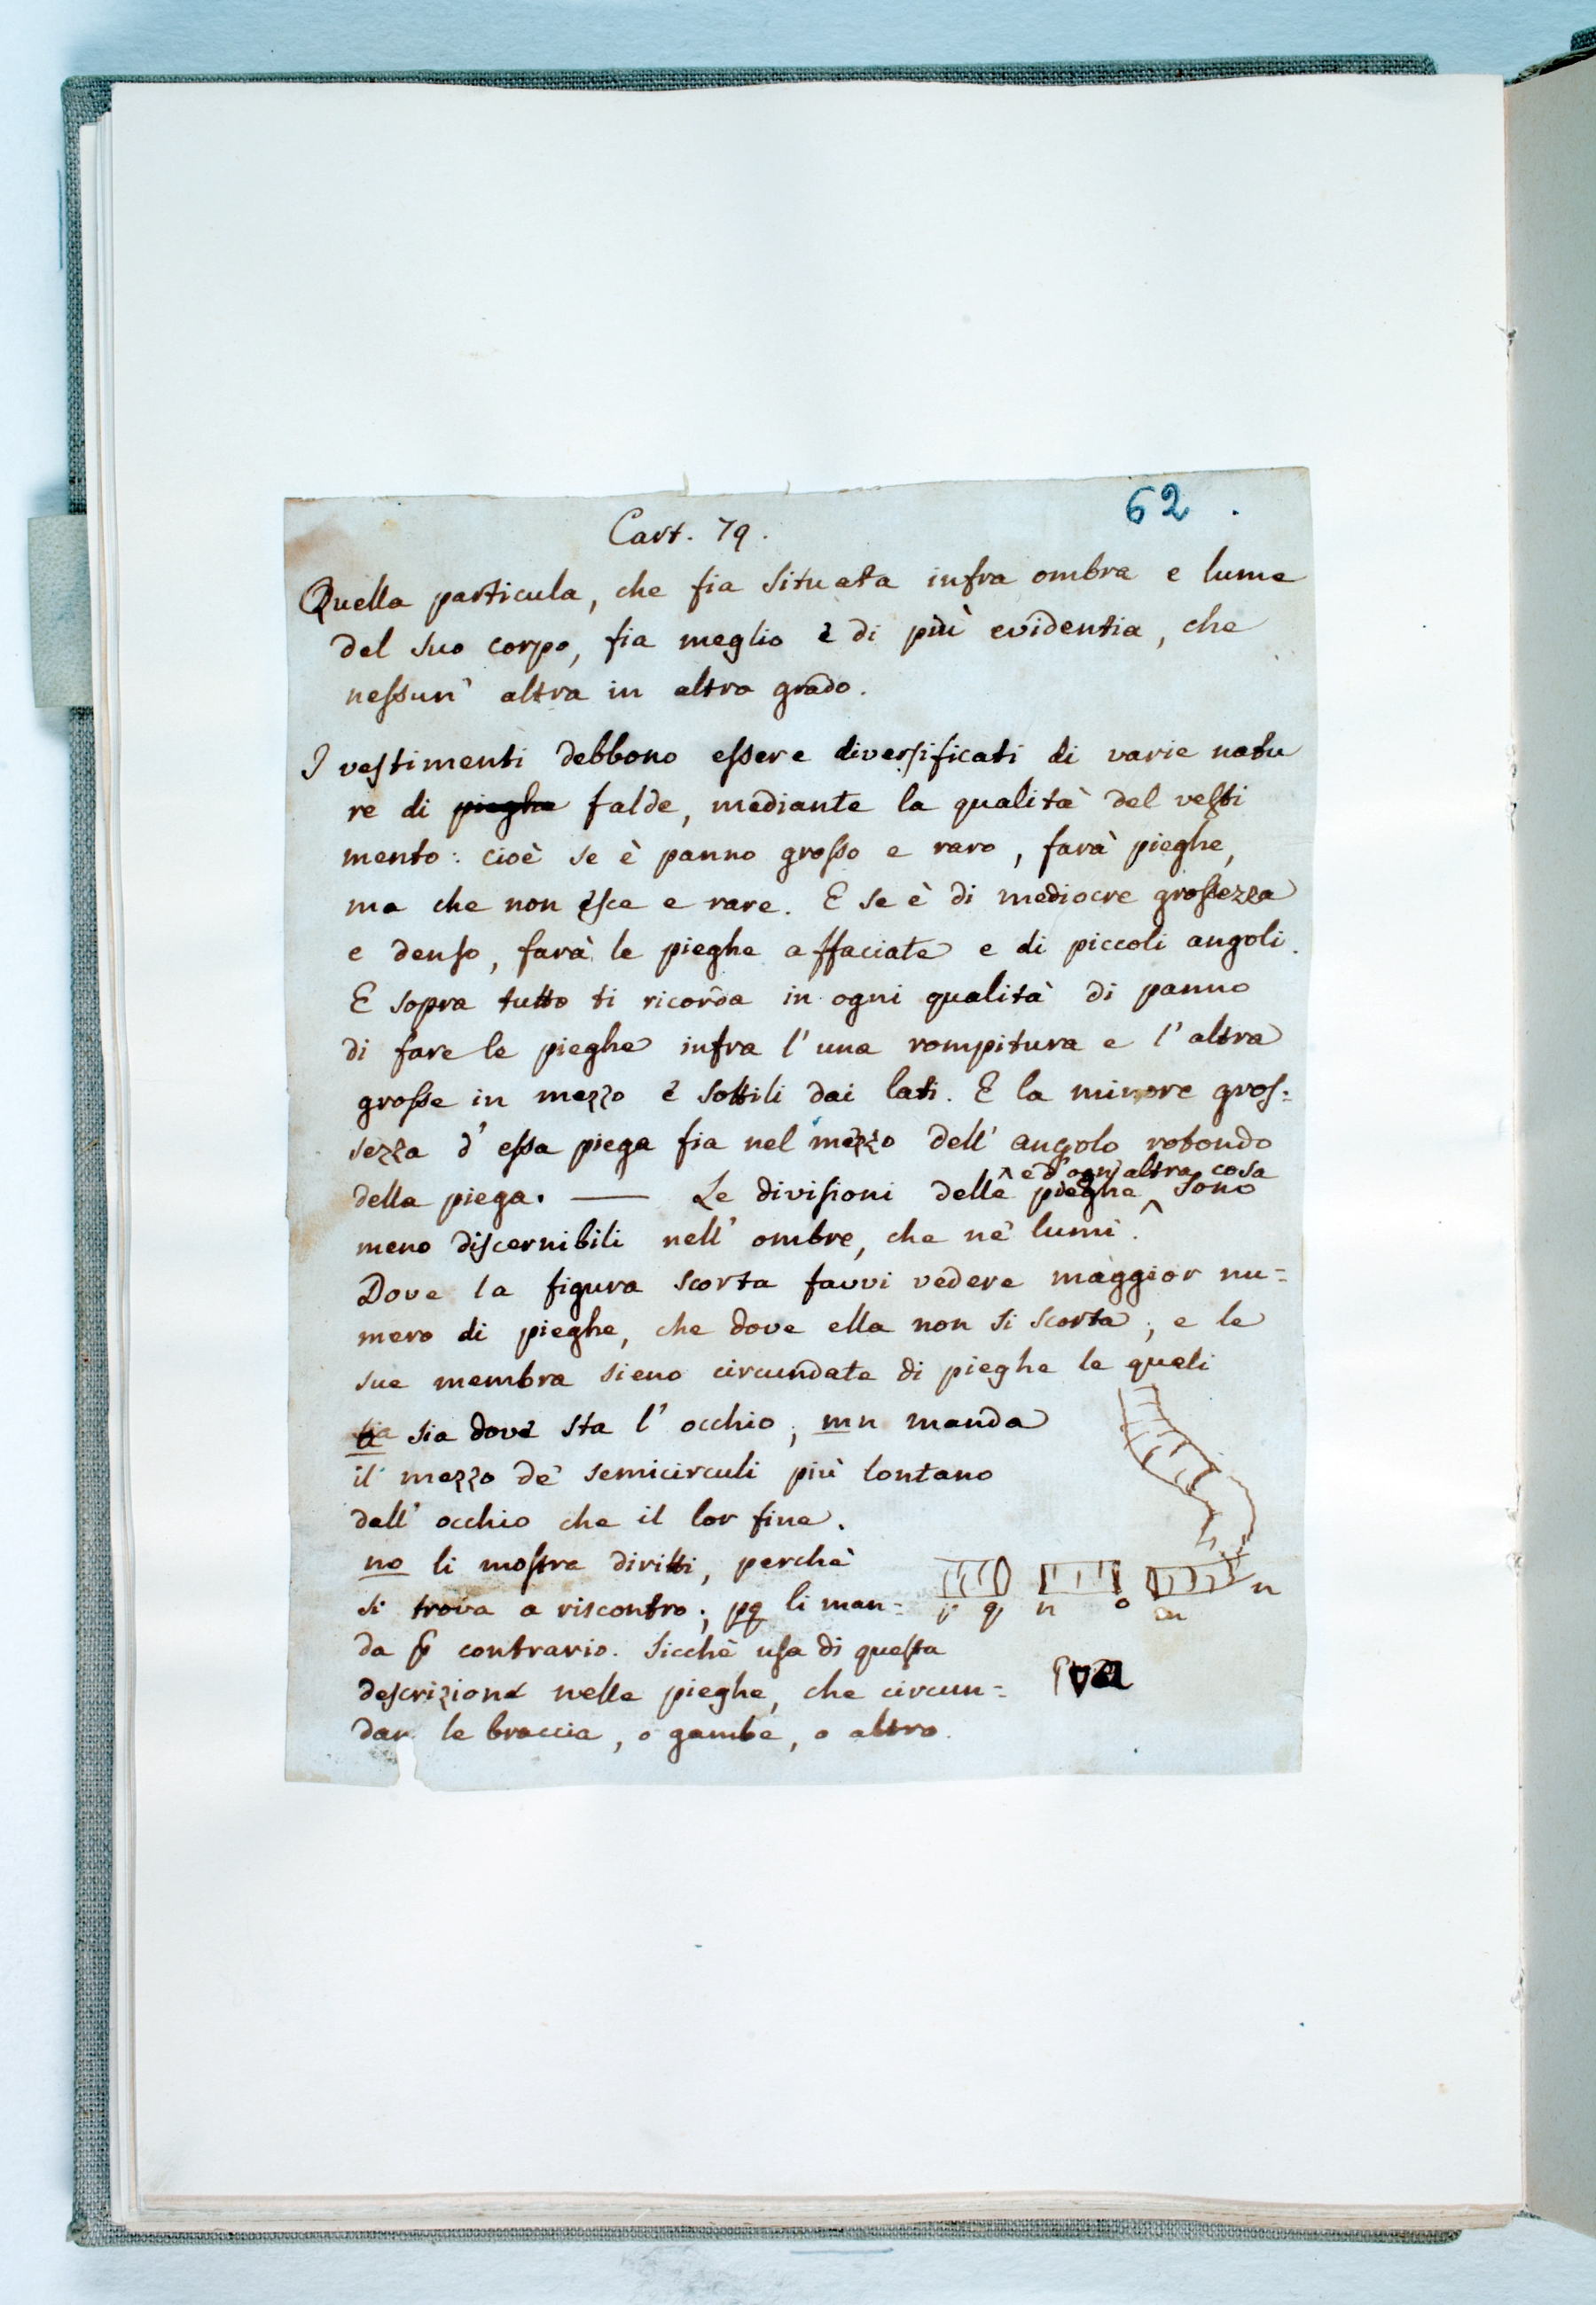 62.
Cart. 79.
Quella particula, che fia situata infra ombra e lume
del suo corpo, fia meglio e di più evidentia, che
neſsun' altra in altro grado.
I veſtimenti debbono eſsere diverſificati di varie natu
re di pieghe falde, mediante la qualità del veſti
mento: cioè se è panno groſso e raro, farà pieghe,
ma che non eſce e rare. E se è di mediocre groſsezza
e denſo, farà le pieghe affaciate e di piccoli angoli.
E sopra tutto ti ricorda in ogni qualità di panno
di fare le pieghe infra l'una rompitura e l'altra
groſse in mezzo e sottili dai lati. E la minore groſ=
sezza d'eſsa piega fia nel mezzo dell'angolo rotondo
^ e d'ogni altra cosa
della piega. — Le diviſioni delle pieghe ^ sono
meno diſcernibili nell'ombre, che ne' lumi.
Dove la figura scorta favvi vedere maggior nu=
mero di pieghe, che dove ella non si scorta; e le
sue membra sieno circundate di pieghe le quali
a sia dove sta l'occhio; mn manda
il mezzo de' semicirculi più lontano
dall'occhio che il lor fine.
no li moſtra diritti, perchè
si trova a riscontro; pq li man=
da p contrario. Sicchè uſa di queſta
deſcrizione nelle pieghe, che circun=
dan le braccia, o gambe, o altro.
p q n o m n